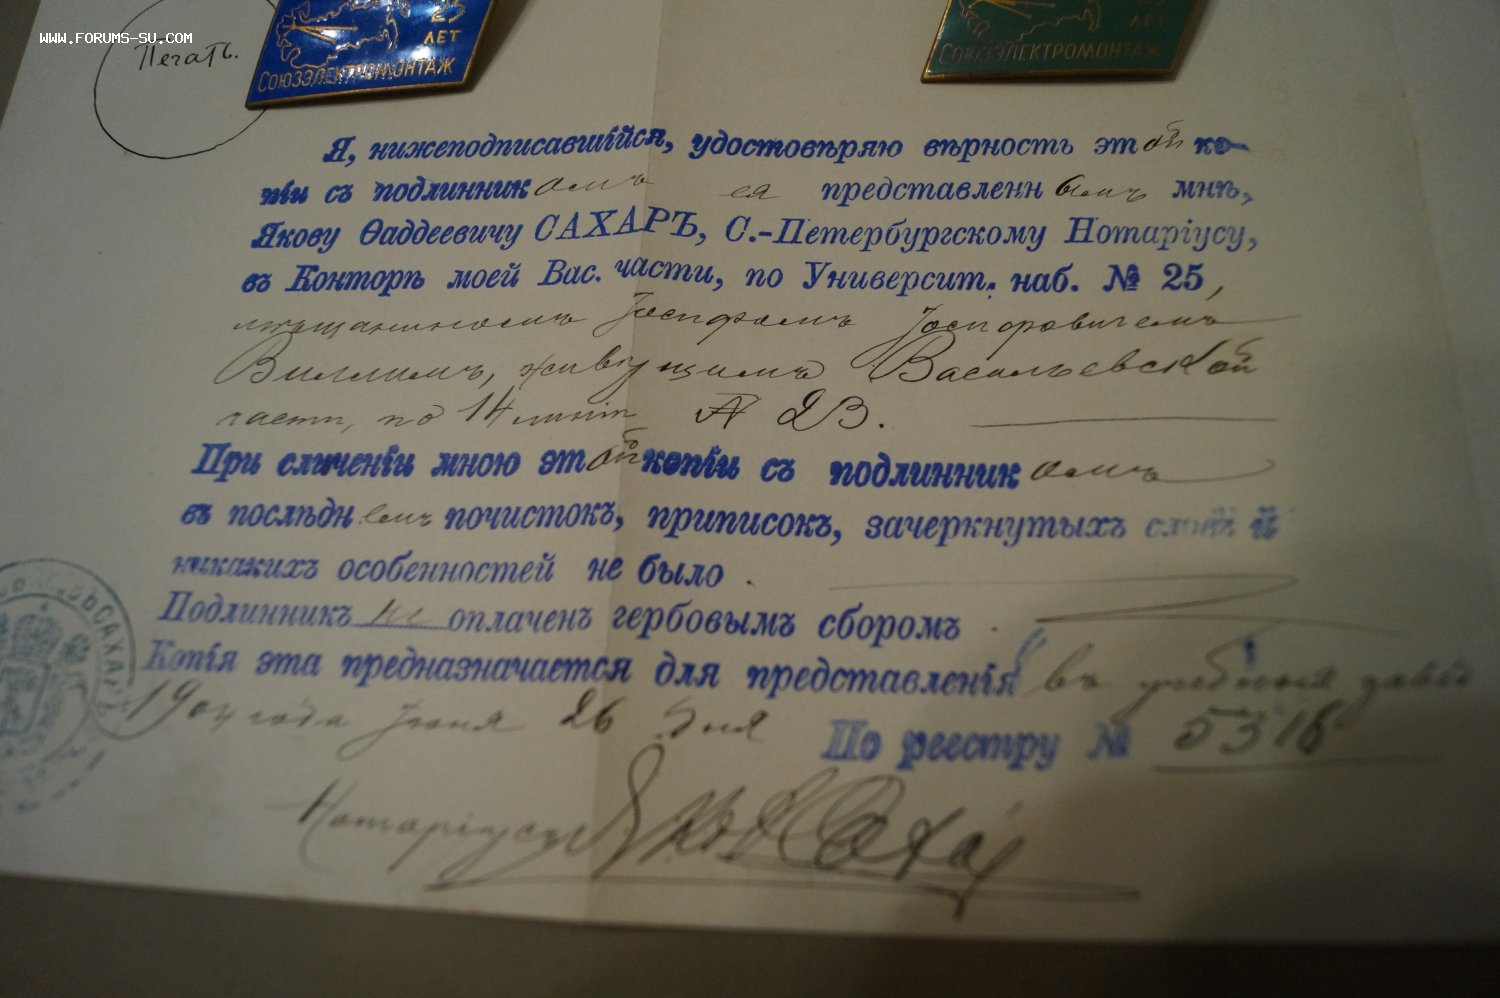 WWW.FORUMS-SU.COM
Печать.
25
ЛЕТ
СОЮЗЭЛЕКТРОМОНТАЖ
25
ЛЕТ
СОЮЗЭЛЕКТРОМОНТАЖ
Я, нижеподписавшійся, удостовѣряю вѣрность этой ко-
піи съ подлинникомъ ея представленнымъ мнѣ,
Якову Ѳаддеевичу САХАРЪ, С.-Петербургскому Нотаріусу,
въ Конторѣ моей Вас. части, по Университ. наб. № 25,
мѣщаниномъ Іосифомъ Іосифовичемъ
живущимъ Васильевской
части, по 14 линіи № 23.
При сличеніи мною этой копіи съ подлинникомъ
въ послѣднемъ почистокъ, приписокъ, зачеркнутыхъ словъ и
никакихъ особенностей не было.
Подлинникъ не оплаченъ гербовымъ сборомъ.
Копія эта предназначается для представленія въ учебныя завед
1904 года Іюня 26 дня По реестру № 5318
Нотаріусъ Сахаръ
САХАРЪ